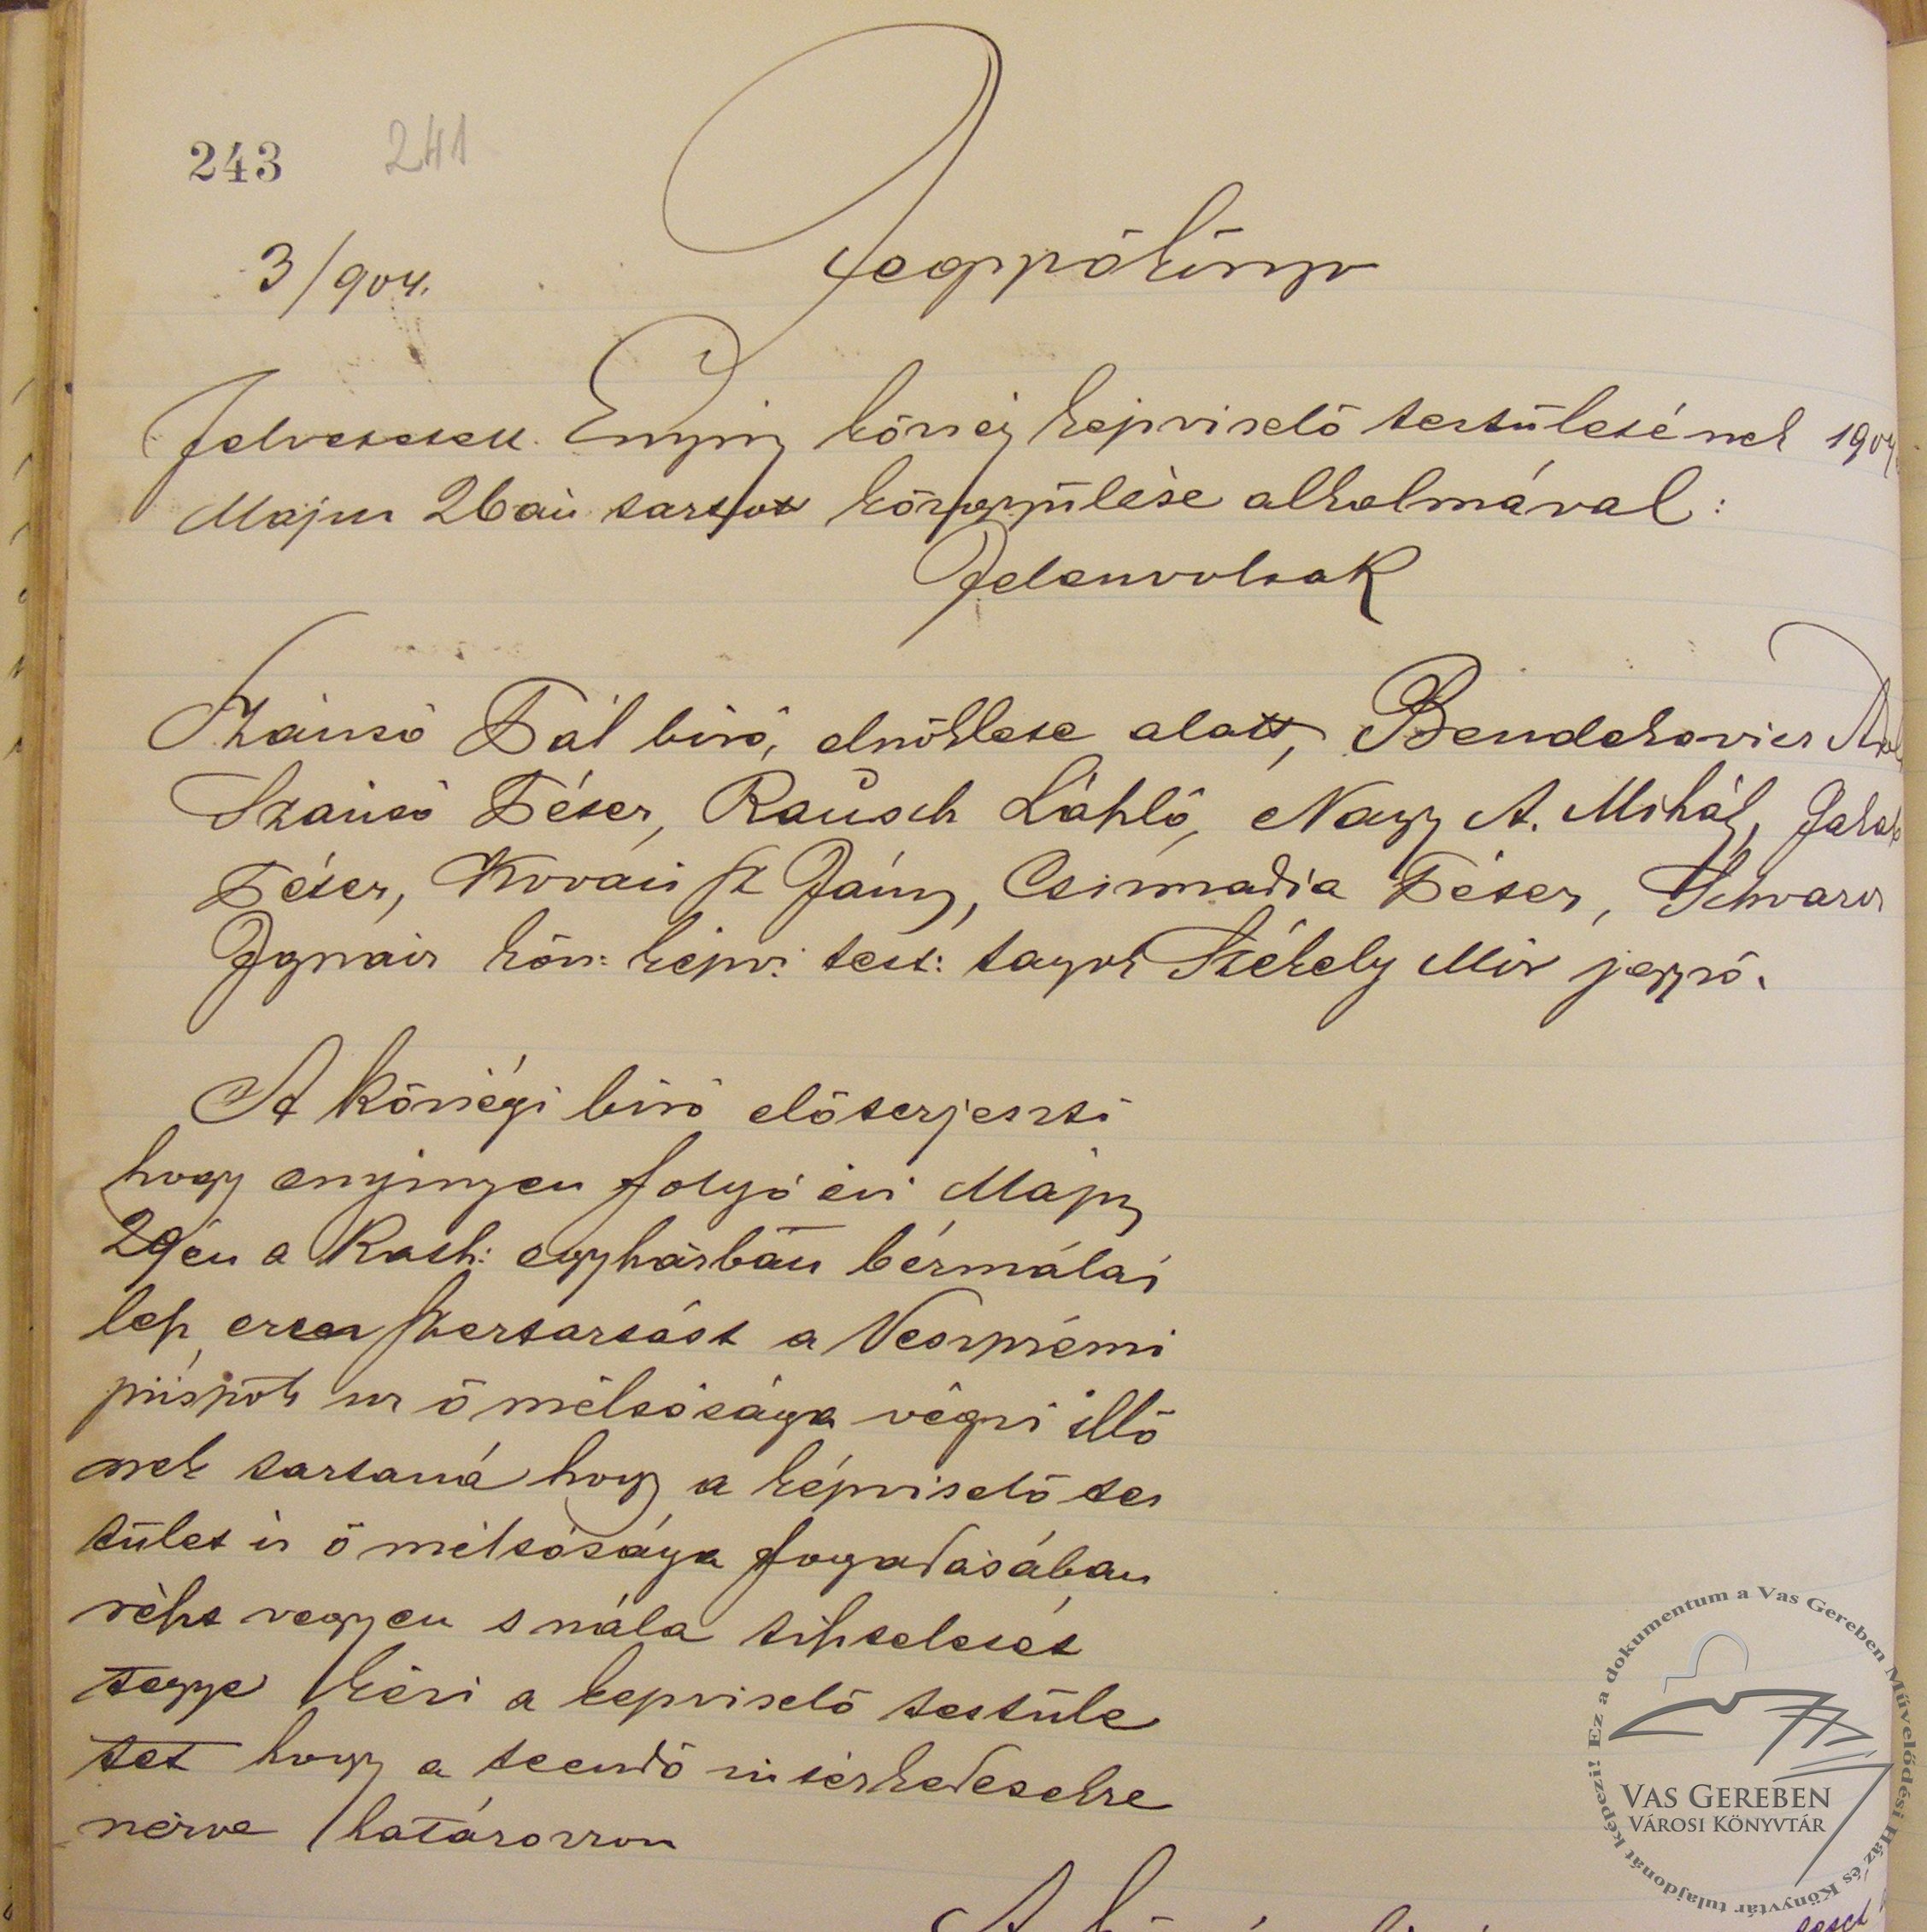 243 241
3/904.
Jegyzőkönyv
Felvetetett Enying község képviselő testületének 1904
Május 26án tartott közgyűlése alkalmával:
Jelenvoltak
Szántó Pál biró, elnöklete alatt, Benedekovics
Szántó Péter, Rausch László, Nagy A. Mihály, Jakab
Péter, Kovács Sz János, Csizmadia Péter, Schvarcz
Ignácz közs: képv: test: tagok Székely Mór jegyző.
A községi biró előterjeszti
hogy enyingen folyó évi Május
29én a Kath: egyházban bérmálás
lesz, ezen szertartást a Veszprémi
püspök ur ő méltósága végzi illő
nek tartaná hogy a képviselő tes
tület is ő méltósága fogadásában
részt vegyen s nála tiszteletét
tegye kéri a képviselő testüle
tet hogy a teendő intézkedésekre
nézve határozzon
Ez a dokumentum a Vas Gereben Művelődési Ház és Könyvtár tulajdonát képezi!
VAS GEREBEN
VÁROSI KÖNYVTÁR